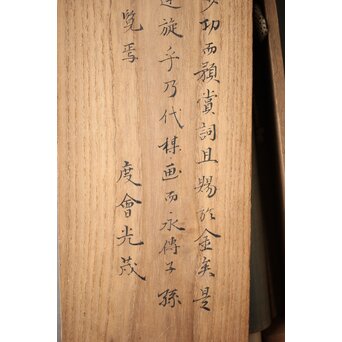 功而顆賞詞且賜於金矣是
旋乎乃代楳画而永傳子孫
覧焉
度會光茂